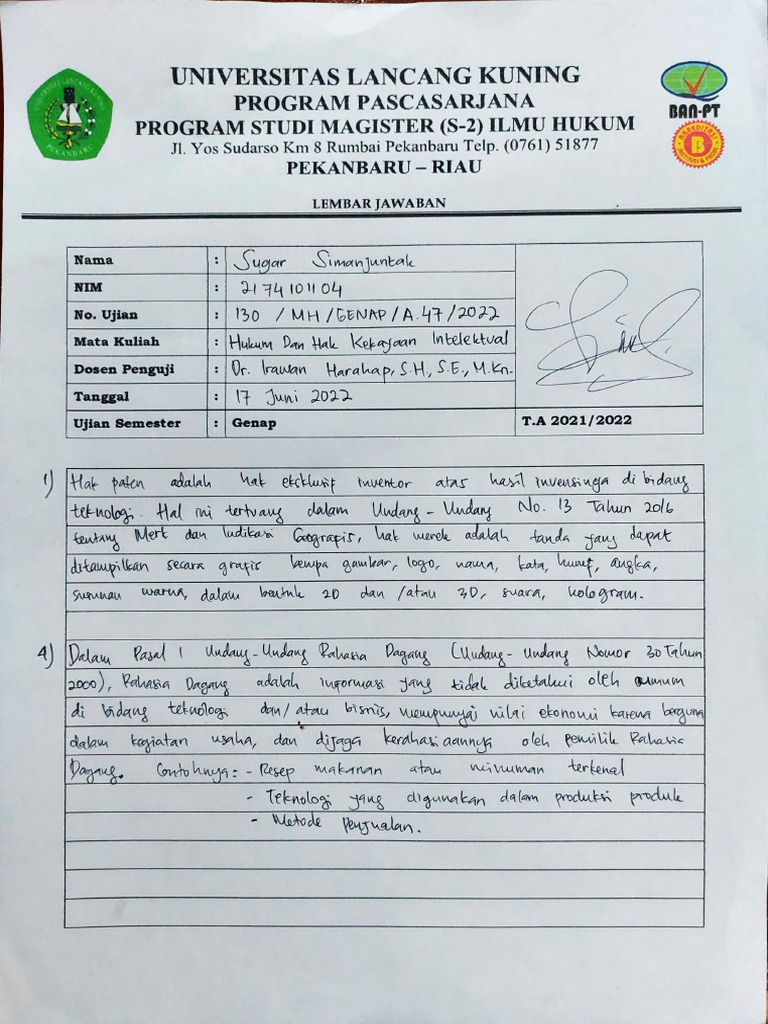 UNIVERSITAS LANCANG KUNING
PROGRAM PASCASARJANA
PROGRAM STUDI MAGISTER (S-2) ILMU HUKUM
Jl. Yos Sudarso Km 8 Rumbai Pekanbaru Telp. (0761) 51877
PEKANBARU – RIAU
UNIVERSITAS LANCANG KUNING
PEKANBARU
BAN-PT
AKREDITASI
B
LEMBAR JAWABAN
Nama : Sugar Simanjuntak
NIM : 2174101104
No. Ujian : 130 / MH / GENAP / A.47 / 2022
Mata Kuliah : Hukum Dan Hak Kekayaan Intelektual
Dosen Penguji : Dr. Irawan Harahap, S.H., S.E., M.Kn.
Tanggal : 17 Juni 2022
Ujian Semester : Genap T.A 2021/2022
1) Hak paten adalah hak eksklusif inventor atas hasil invensinya di bidang
teknologi. Hal ini tertuang dalam Undang-Undang No. 13 Tahun 2016
tentang Merk dan Indikasi Geografis, hak merek adalah tanda yang dapat
ditampilkan secara grafis berupa gambar, logo, nama, kata, huruf, angka,
susunan warna, dalam bentuk 2D dan /atau 3D, suara, hologram.
4) Dalam Pasal 1 Undang-Undang Rahasia Dagang (Undang-Undang Nomor 30 Tahun
2000), Rahasia Dagang adalah informasi yang tidak diketahui oleh umum
di bidang teknologi dan/atau bisnis, mempunyai nilai ekonomi karena berguna
dalam kegiatan usaha, dan dijaga kerahasiaannya oleh pemilik Rahasia
Dagang. Contohnya: - Resep makanan atau minuman terkenal
- Teknologi yang digunakan dalam produksi produk
- Metode Penjualan.